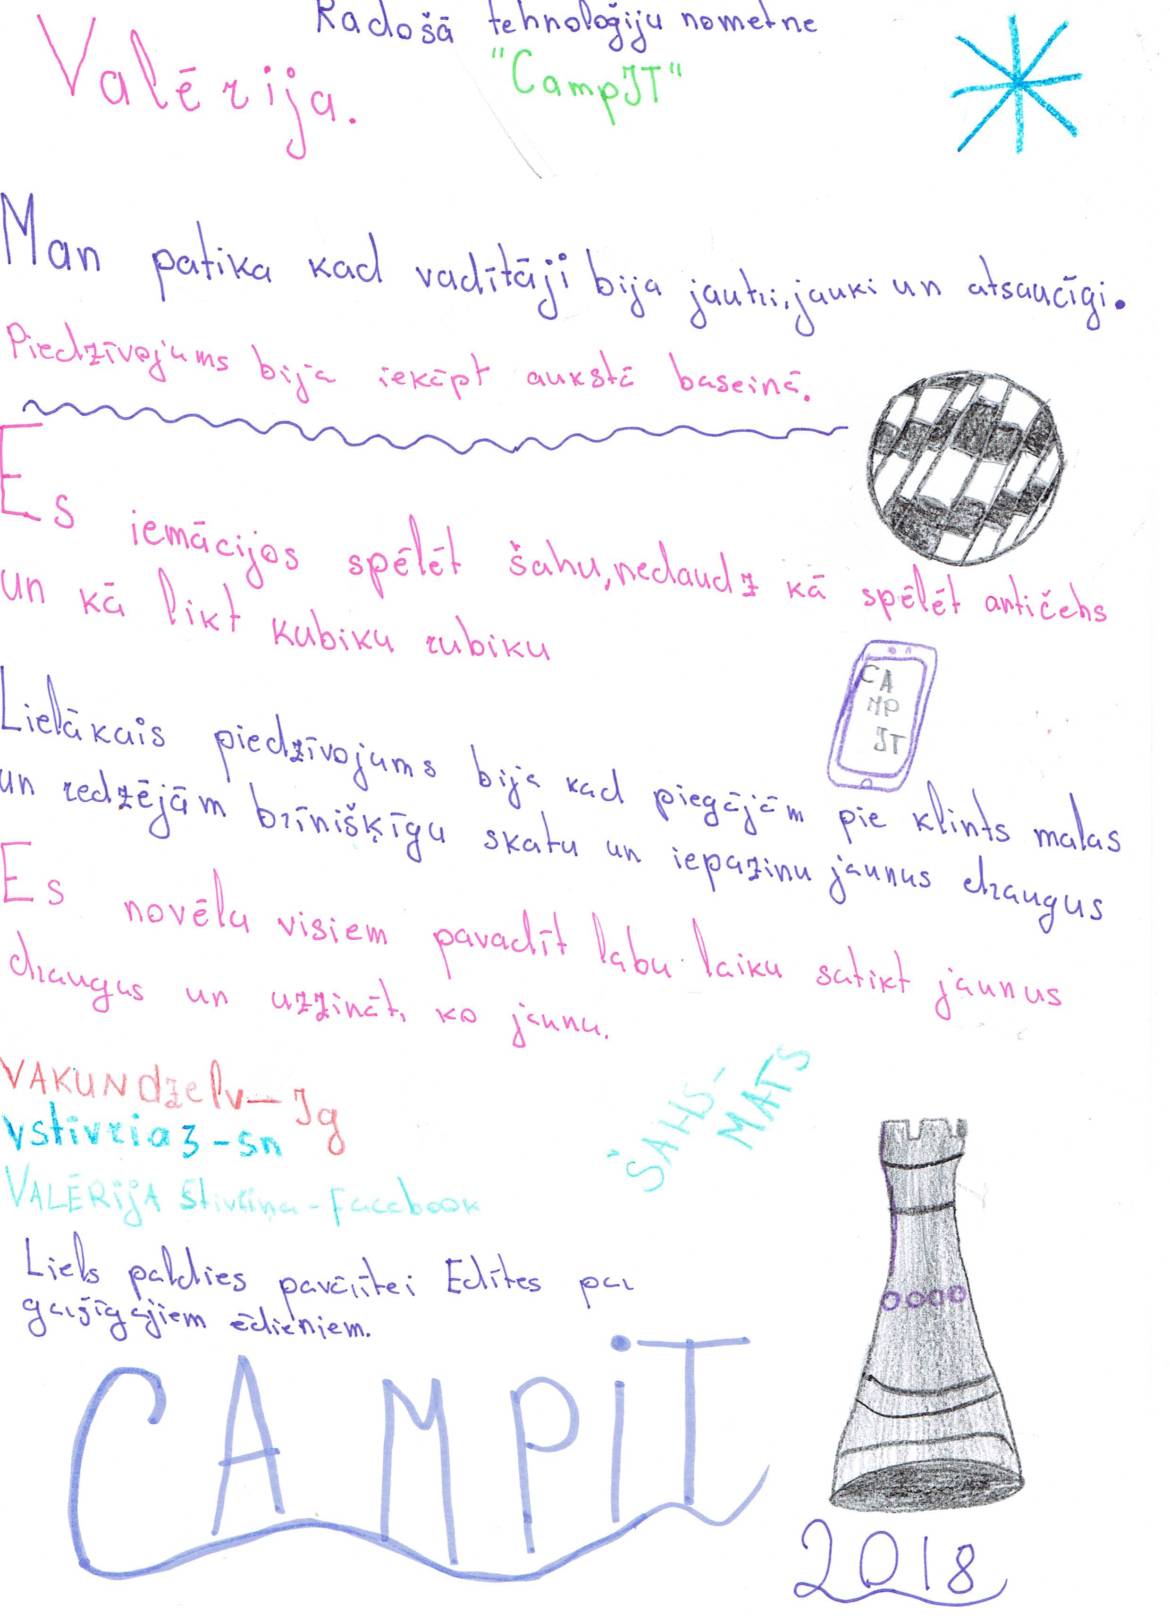 Radošā tehnoloģiju nometne
"CampJT"
Valērija.
Man patika kad vadītāji bija jautri, jauki un atsaucīgi.
Piedzīvojums bija iekāpt aukstā baseinā.
Es iemācijos spēlēt šahu, nedaudz kā spēlēt antičehs
un kā likt kubiku rubiku
CA
MP
JT
Lielākais piedzīvojums bija kad piegājām pie klints malas
un redzējām brīnišķīgu skatu un iepazinu jaunus draugus
Es novēlu visiem pavadīt labu laiku satikt jaunus
draugus un uzzināt, ko jaunu.
VAKUNdzelv-Jg
vstivria3-sn
VALĒRIJA Stivriņa-Facebook
ŠAHS-
MATS
Liels paldies pavārītei Edītes par
garšīgajiem ēdieniem.
CAMPiT
2018